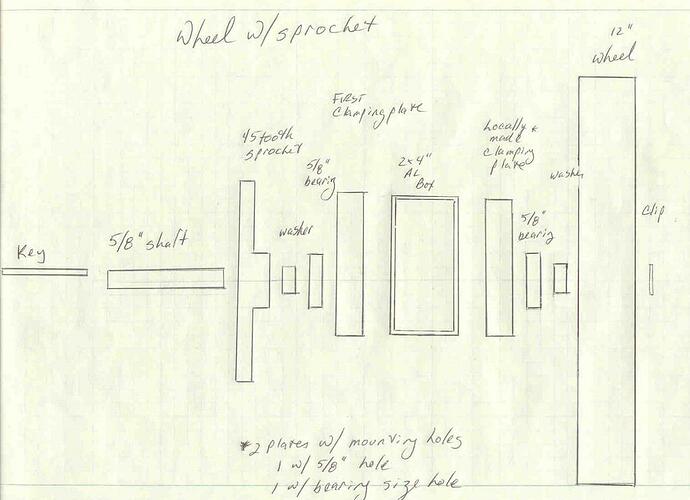 Wheel w/ sprocket
12"
wheel
FIRST
clamping plate
45 tooth
sprocket
5/8"
bearing
2x4"
AL
Box
Locally *
made
clamping
plate
washer
clip
5/8"
bearing
washer
5/8" shaft
Key
*2 plates w/ mounting holes
1 w/ 5/8" hole
1 w/ bearing size hole